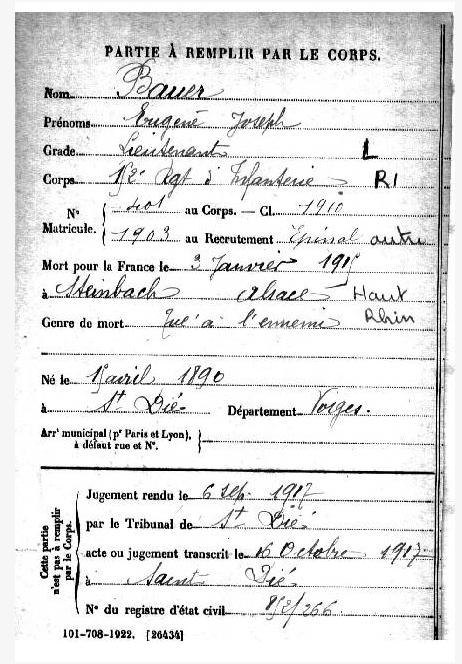 PARTIE À REMPLIR PAR LE CORPS.
Nom Bauer
Prénoms Eugène Joseph
Grade Lieutenant L
Corps 152e Rgt d'Infanterie RI
N° Matricule. 401 au Corps. — Cl. 1910
1903 au Recrutement Epinal autre
Mort pour la France le 3 Janvier 1915
à Steinbach Alsace Haut
Genre de mort Tué à l'ennemi Rhin
Né le 15 avril 1890
à St Dié Département Vosges.
Arrt municipal (pr Paris et Lyon),
à défaut rue et N°.
Cette partie
n'est pas à remplir
par le Corps.
Jugement rendu le 6 sep. 1917
par le Tribunal de St Dié
acte ou jugement transcrit le 16 Octobre 1917
à Saint Dié
N° du registre d'état civil 852/266
101-708-1922. [26434]